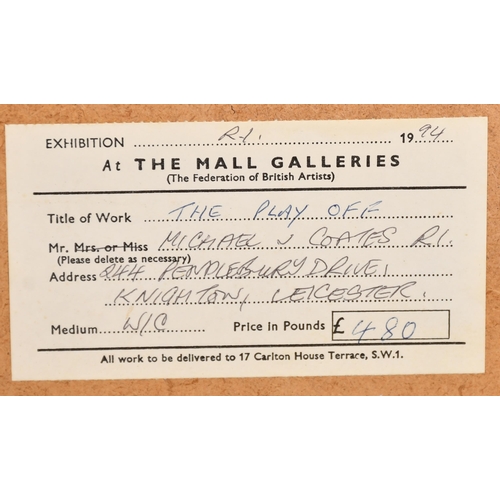 EXHIBITION R.I. 1994
At THE MALL GALLERIES
(The Federation of British Artists)
Title of Work THE PLAY OFF
Mr. Mrs. or Miss MICHAEL J COATES R.I.
(Please delete as necessary)
Address 244 PENDLEBURY DRIVE,
KNIGHTON, LEICESTER.
Medium W/C Price in Pounds £480
All work to be delivered to 17 Carlton House Terrace, S.W.1.